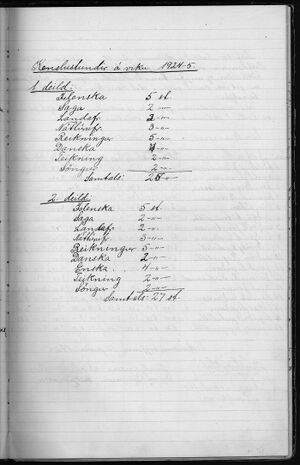 Kenslustundir á viku 1924-5.
1 deild.
Íslenska 5 st.
Saga 2 -"-
Landafr. 2 -"-
Náttúrufr. 3 -"-
Reikningur 5 -"-
Danska 4 -"-
Teikning 2 -"-
Söngur 2 -"-
Samtals: 25 -"-
2. deild.
Íslenska 5 st.
Saga 2 -"-
Landafr. 2 -"-
Náttúrufr. 3 -"-
Reikningur 5 -"-
Danska 2 -"-
Enska 4 -"-
Teikning 2 -"-
Söngur 2 -"-
Samtals: 27 st.